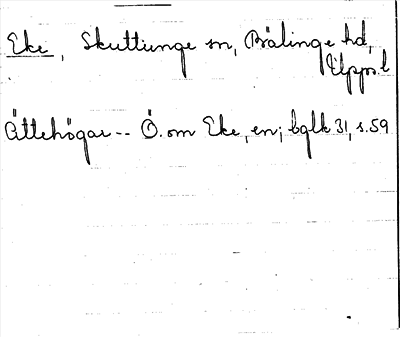 Eke, Skuttunge sn, Bälinge hd,
Upps. l
Ättehögar -- Ö. om Eke, en; bglk 31, s. 59